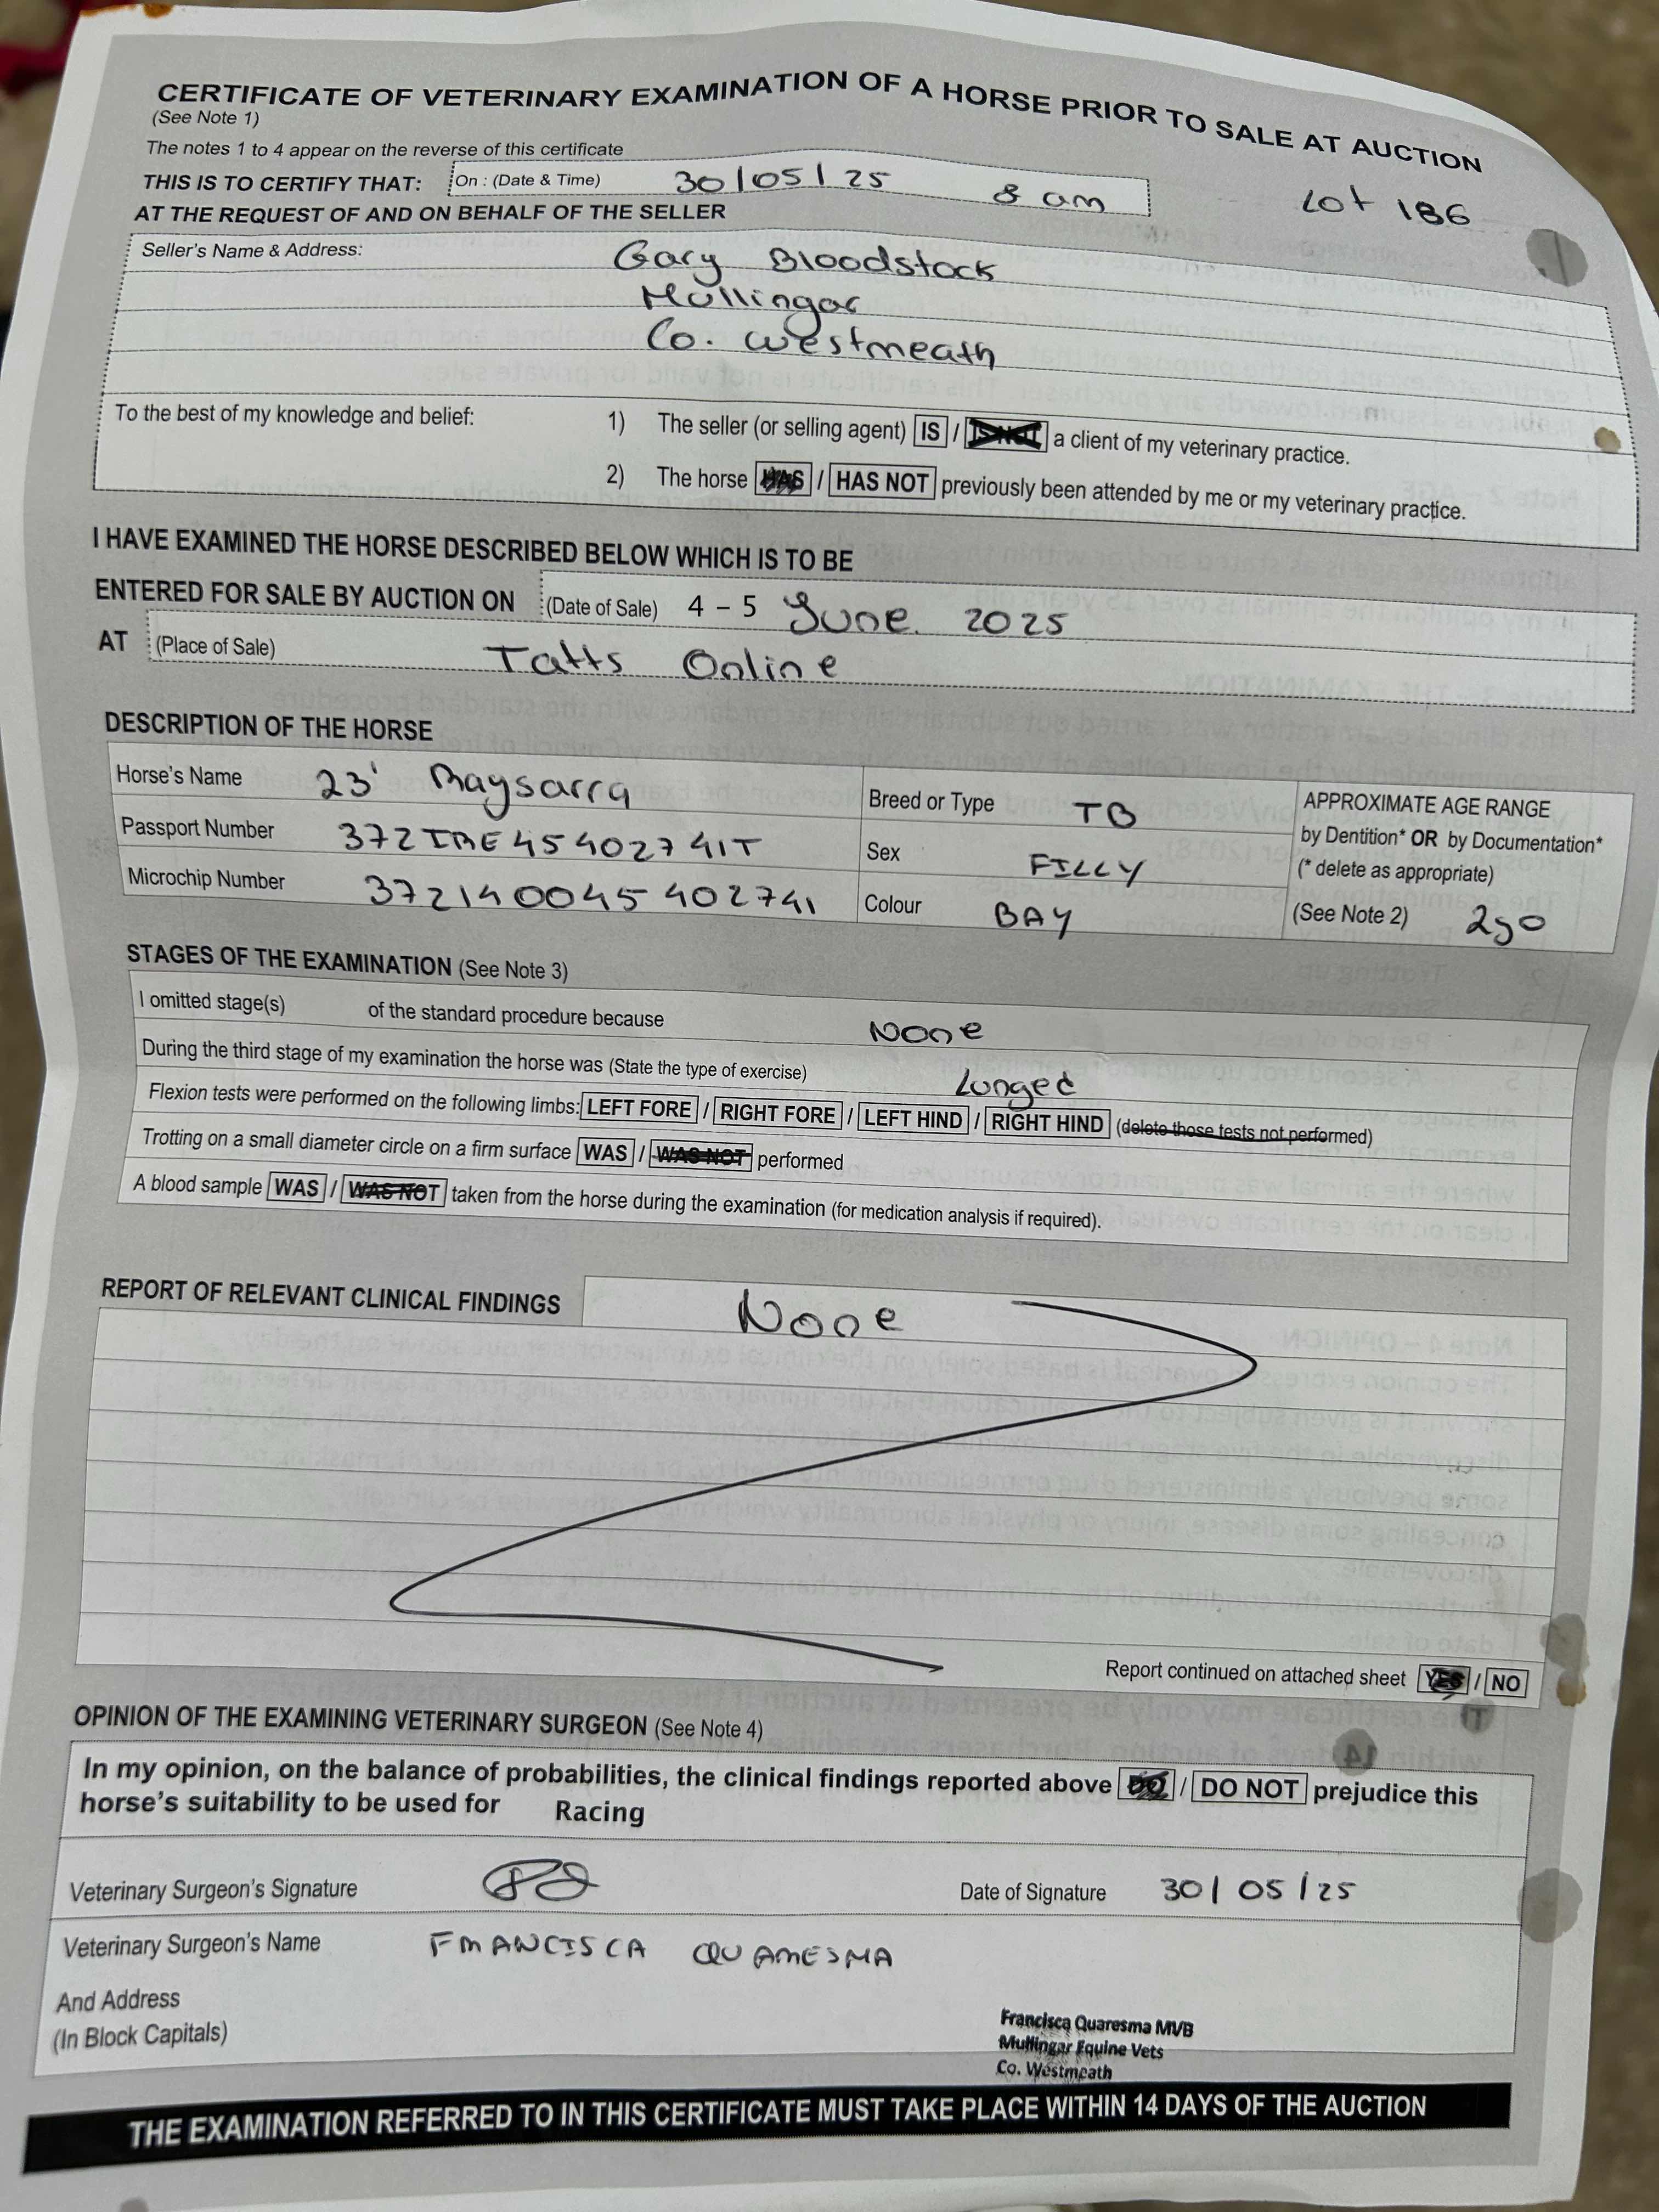 CERTIFICATE OF VETERINARY EXAMINATION OF A HORSE PRIOR TO SALE AT AUCTION
(See Note 1)
The notes 1 to 4 appear on the reverse of this certificate
THIS IS TO CERTIFY THAT: On : (Date & Time) 30/05/25 8 am
Lot 186
AT THE REQUEST OF AND ON BEHALF OF THE SELLER
Seller's Name & Address: Gary Bloodstock
Mullingar
Co. Westmeath
To the best of my knowledge and belief: 1) The seller (or selling agent) IS / IS NOT a client of my veterinary practice.
2) The horse HAS / HAS NOT previously been attended by me or my veterinary practice.
I HAVE EXAMINED THE HORSE DESCRIBED BELOW WHICH IS TO BE
ENTERED FOR SALE BY AUCTION ON (Date of Sale) 4 - 5 June 2025
AT (Place of Sale) Tatts Online
DESCRIPTION OF THE HORSE
Horse's Name 23' Raysarra
Passport Number 372IRE45402741T
Microchip Number 372140045402741
Breed or Type TB
Sex FILLY
Colour BAY
APPROXIMATE AGE RANGE
by Dentition* OR by Documentation*
(* delete as appropriate)
(See Note 2) 2yo
STAGES OF THE EXAMINATION (See Note 3)
I omitted stage(s) of the standard procedure because None
During the third stage of my examination the horse was (State the type of exercise) Lunged
Flexion tests were performed on the following limbs: LEFT FORE / RIGHT FORE / LEFT HIND / RIGHT HIND (delete those tests not performed)
Trotting on a small diameter circle on a firm surface WAS / WAS NOT performed
A blood sample WAS / WAS NOT taken from the horse during the examination (for medication analysis if required).
REPORT OF RELEVANT CLINICAL FINDINGS None
Report continued on attached sheet YES / NO
OPINION OF THE EXAMINING VETERINARY SURGEON (See Note 4)
In my opinion, on the balance of probabilities, the clinical findings reported above DO / DO NOT prejudice this
horse's suitability to be used for Racing
Veterinary Surgeon's Signature
Date of Signature 30/05/25
Veterinary Surgeon's Name FRANCISCA QUARESMA
And Address
(In Block Capitals)
Francisca Quaresma MVB
Mullingar Equine Vets
Co. Westmeath
THE EXAMINATION REFERRED TO IN THIS CERTIFICATE MUST TAKE PLACE WITHIN 14 DAYS OF THE AUCTION